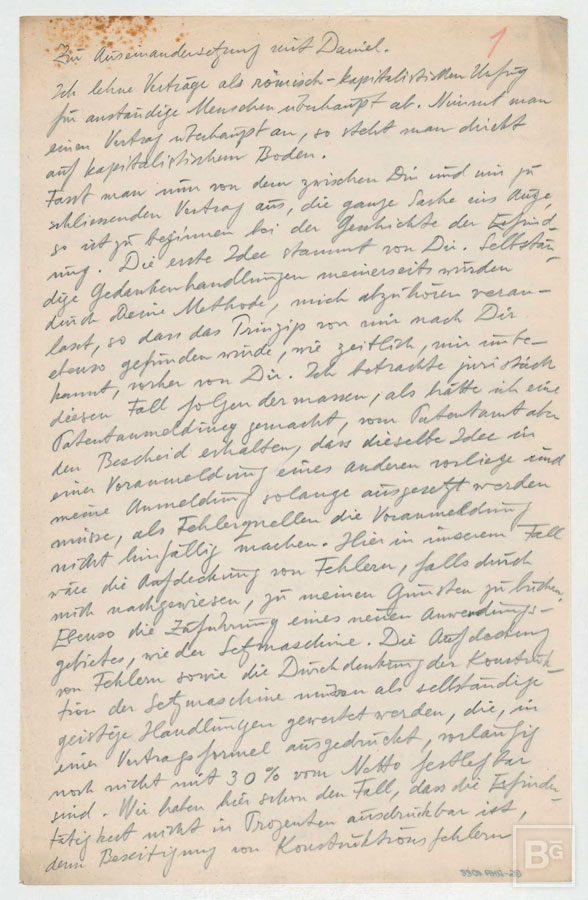 1
Zur Auseinandersetzung mit Daniel.
Ich lehne Verträge als römisch-kapitalistischen Unfug
für anständige Menschen überhaupt ab. Nimmt man
einen Vertrag überhaupt an, so steht man direkt
auf kapitalistischem Boden.
Fasst man nun von dem zwischen Dir und mir zu
schliessenden Vertrag aus, die ganze Sache ins Auge,
so ist zu beginnen bei der Geschichte der Erfind-
ung. Die erste Idee stammt von Dir. Selbstän-
dige Gedankenhandlungen meinerseits wurden
durch Deine Methode, mich abzuhören veran-
lasst, so dass das Prinzip von mir nach Dir
ebenso gefunden wurde, wie zeitlich, mir unbe-
kannt, vorher von Dir. Ich betrachte juristisch
diesen Fall folgendermassen, als hätte ich eine
Patentanmeldung gemacht, vom Patentamt aber
den Bescheid erhalten, dass dieselbe Idee in
einer Voranmeldung eines anderen vorliege und
meine Anmeldung solange ausgesetzt werden
müsse, als Fehlerquellen die Voranmeldung
nicht hinfällig machen. Hier in unserem Fall
wäre die Aufdeckung von Fehlern, falls durch
mich nachgewiesen, zu meinen Gunsten zu buchen,
Ebenso die Zuführung eines neuen Anwendungs-
gebietes, wie der Setzmaschine. Die Aufdeckung
von Fehlern sowie die Durchdenkung der Konstruk-
tion der Setzmaschine müssen als selbständige
geistige Handlungen gewertet werden, die, in
einer Vertragsformel ausgedrückt, vorläufig
noch nicht mit 30% vom Netto festlegbar
sind. Wir haben hier schon den Fall, dass die Erfinder-
tätigkeit nicht in Prozenten ausdrückbar ist,
denn Beseitigung von Konstruktionsfehlern
BG